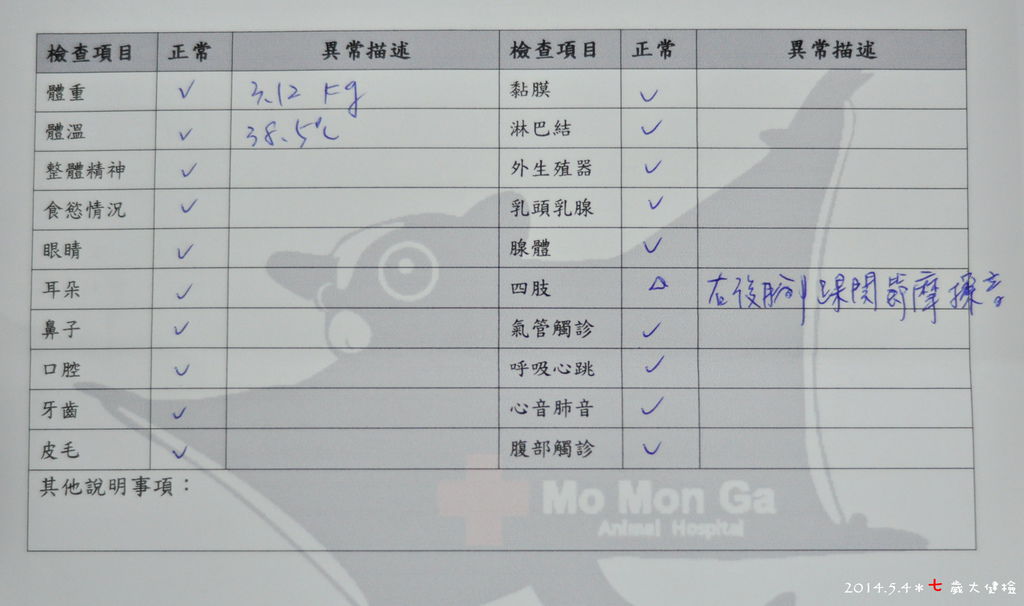 檢查項目 正常 異常描述 檢查項目 正常 異常描述
體重 ✓ 3.12 kg 黏膜 ✓
體溫 ✓ 38.5℃ 淋巴結 ✓
整體精神 ✓ 外生殖器 ✓
食慾情況 ✓ 乳頭乳腺 ✓
眼睛 ✓ 腺體 ✓
耳朵 ✓ 四肢 △ 右後腳 踝関節摩擦音
鼻子 ✓ 氣管觸診 ✓
口腔 ✓ 呼吸心跳 ✓
牙齒 ✓ 心音肺音 ✓
皮毛 ✓ 腹部觸診 ✓
其他說明事項：
Mo Mon Ga
Animal Hospital
2014.5.4＊七歲大健檢